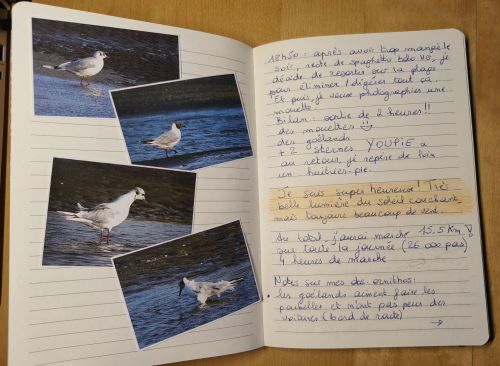 18h50 : après avoir trop mangé le
soir, reste de spaghetti bolo VG, je
décide de repartir sur la plage
pour éliminer / digérer tout ça.
Et puis, je veux photographier une
mouette.
Bilan : sortie de 2 heures !!
des mouettes
des goélands
+ 2 sternes YOUPIE
au retour, je repère de loin
un huîtrier-pie.
Je suis super heureux ! Très
belle lumière du soleil couchant,
mais toujours beaucoup de vent.
Au total, j'aurai marché 15,5 Km
sur toute la journée (26 000 pas)
4 heures de marche
Notes sur mes obs. ornithos :
les goélands aiment faire les
poubelles et n'ont pas peur des
voitures (bord de route)
→